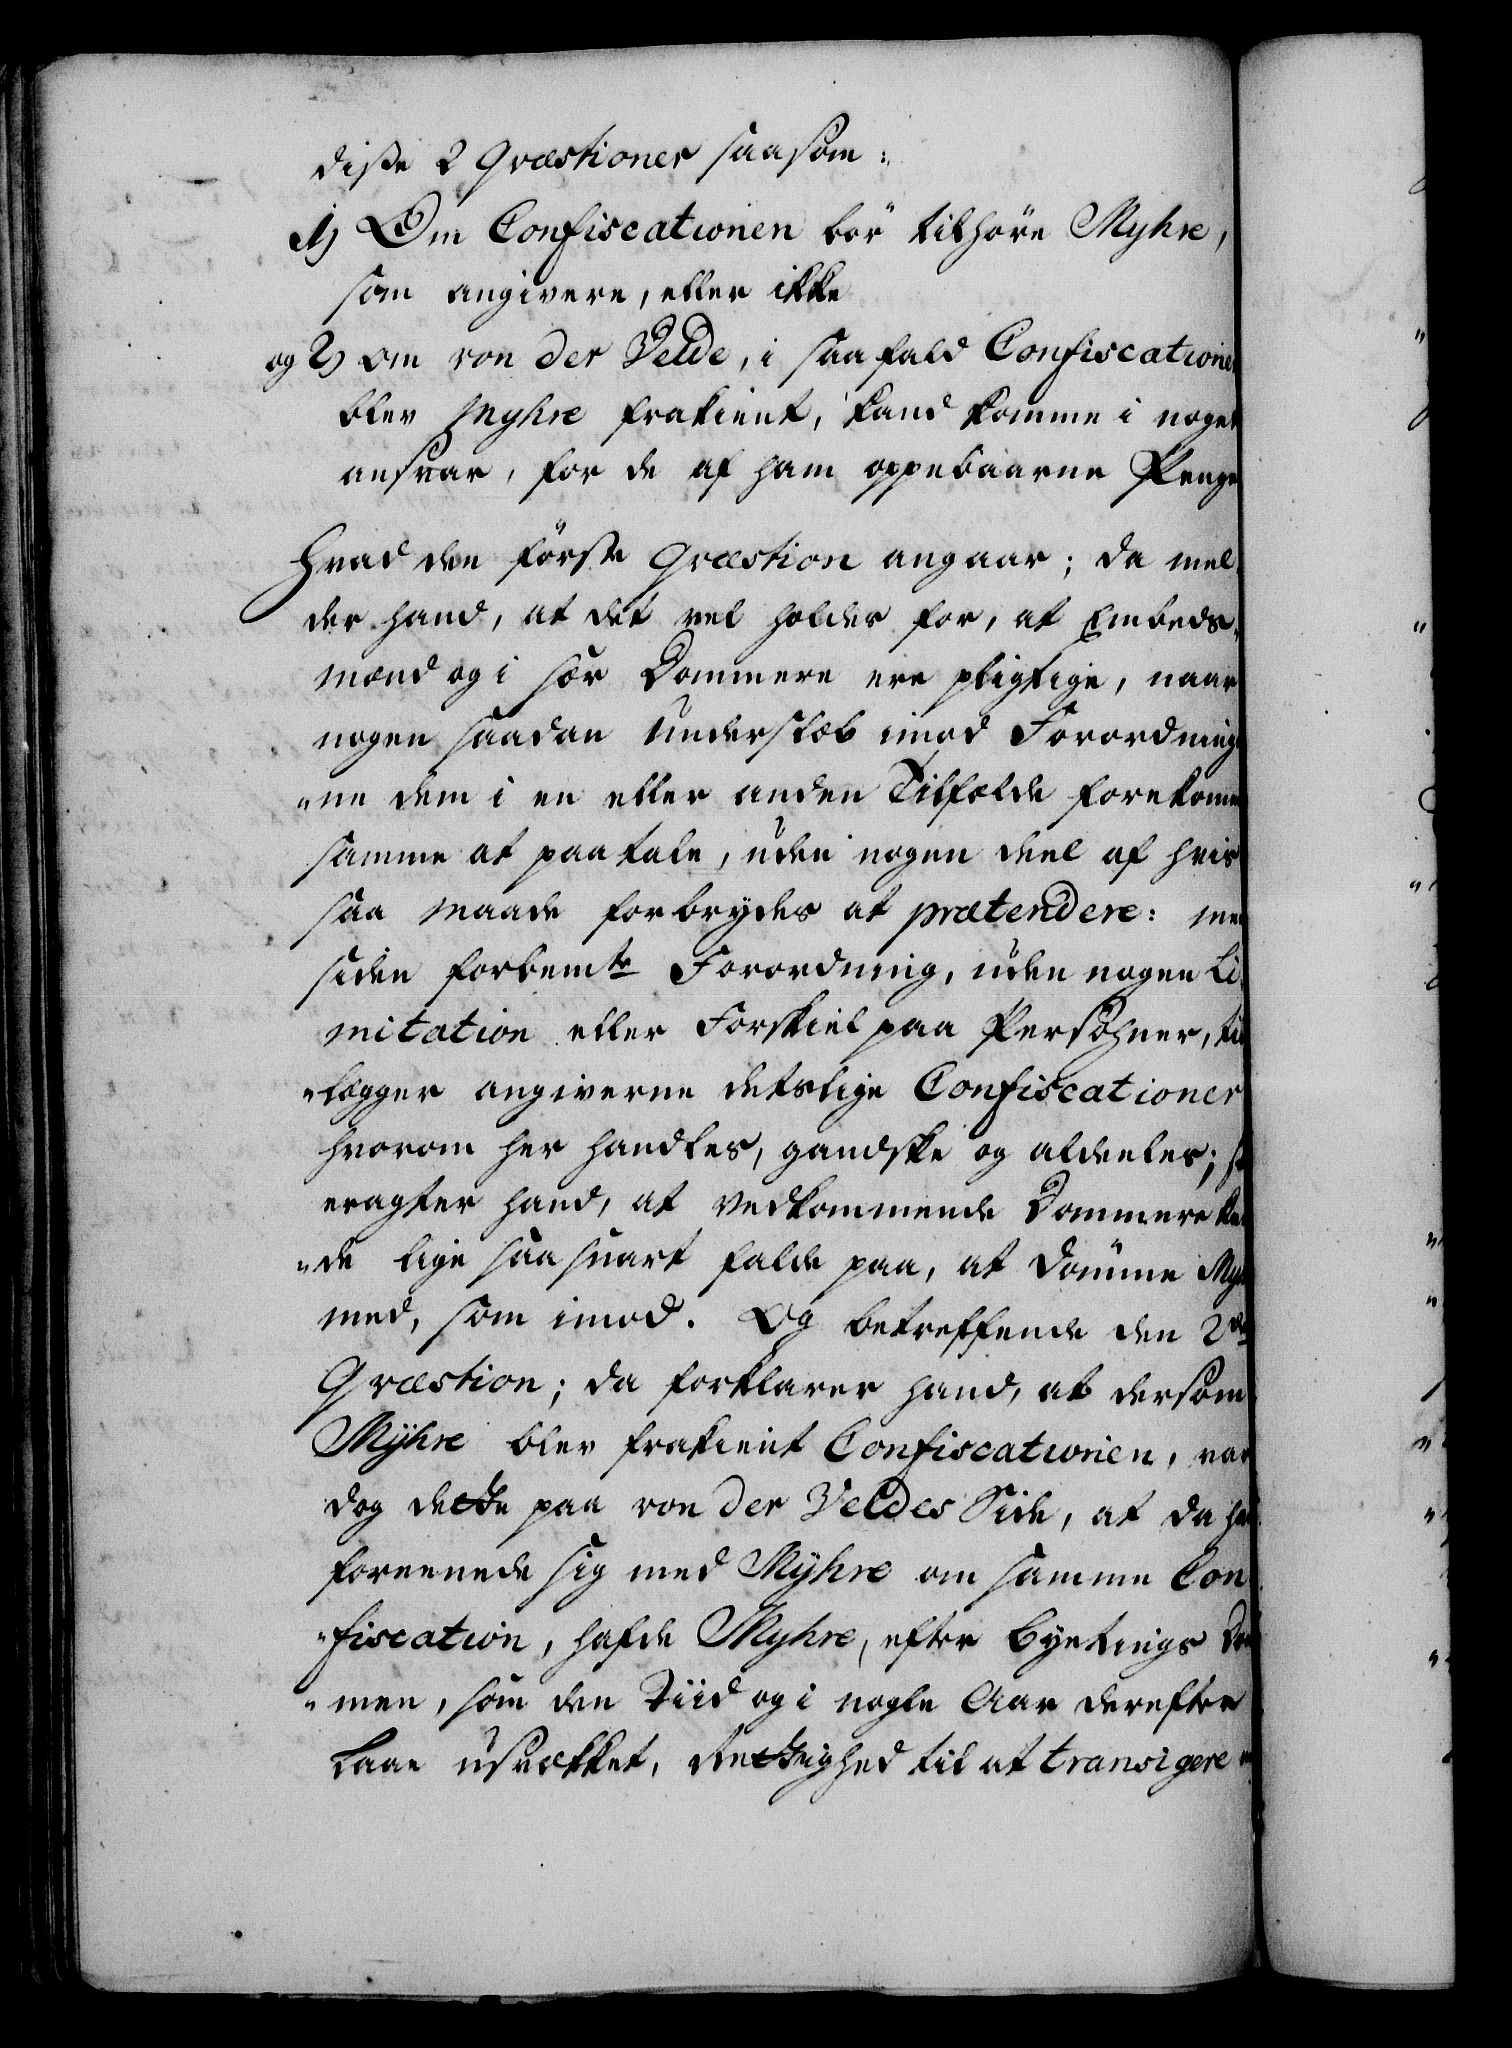 disse 2 Qvæstioner saasom:
1) Om Confiscationen bör tilhöre Myhre,
som angivere, eller ikke
og 2) om von der Velde, i saa fald Confiscationen
blev Myhre frakient, kand komme i noget
ansvar, for de af ham oppebaarne Penge
Hvad den förste Qvæstion angaar; da mel
der hand, at det vel holdes for, at Embeds-
mænd og i sær Dommere ere pligtige, naar
nogen saadan Underslæb imod Forordning
"ne dem i en eller anden Tilfælde forekomme
samme at paatale, uden nogen deel af hvis
saa maade forbrydes at prætendere: men
siden forbemte Forordning, uden nogen Li
mitation eller Forskiel paa Persohner, til
"lægger angiverne detslige Confiscationer
hvorom her handles, gandske og aldeeles; saa
eragter hand, at vedkommende Dommere kun
"de lige saa snart falde paa, at dömme Myhre
med, som imod. Og betreffende den 2den
Qvæstion; da forklarer hand, at dersom
Myhre blev frakient Confiscationen, var
dog dette paa von der Veldes Side, at da hand
foreenede sig med Myhre om samme Con
"fiscation, hafde Myhre, efter Byetings Dom
"men, som den Tiid og i nogle Aar derefter
laae usvækket, Rettighed til at transigere